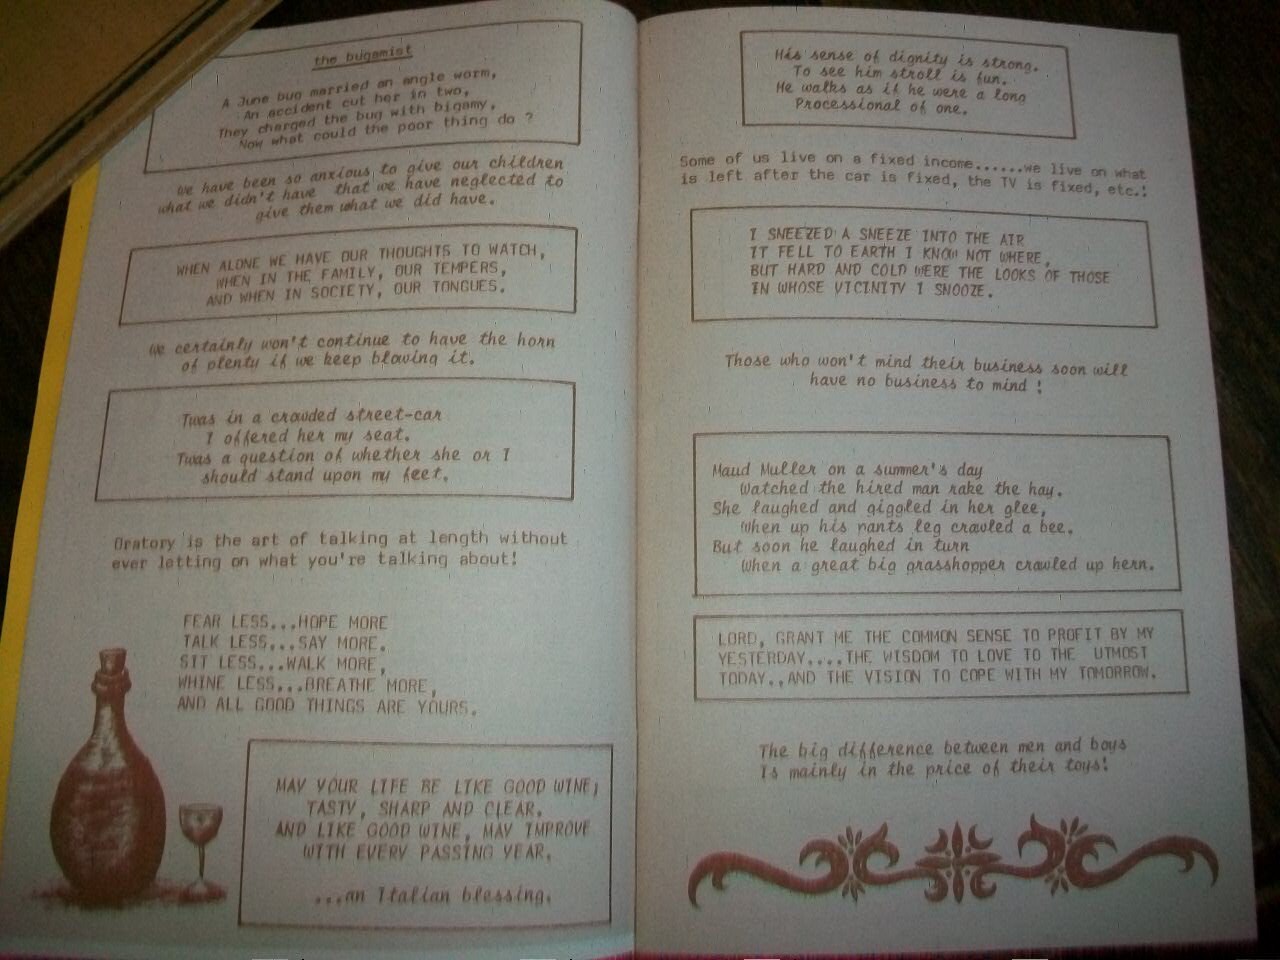 the bugamist
A June bug married an angle worm,
An accident cut her in two,
They charged the bug with bigamy,
Now what could the poor thing do ?
We have been so anxious to give our children
what we didn't have that we have neglected to
give them what we did have.
WHEN ALONE WE HAVE OUR THOUGHTS TO WATCH,
WHEN IN THE FAMILY, OUR TEMPERS,
AND WHEN IN SOCIETY, OUR TONGUES.
We certainly won't continue to have the horn
of plenty if we keep blowing it.
Twas in a crowded street-car
I offered her my seat.
Twas a question of whether she or I
should stand upon my feet.
Oratory is the art of talking at length without
ever letting on what you're talking about!
FEAR LESS...HOPE MORE
TALK LESS...SAY MORE.
SIT LESS...WALK MORE,
WHINE LESS...BREATHE MORE,
AND ALL GOOD THINGS ARE YOURS.
MAY YOUR LIFE BE LIKE GOOD WINE;
TASTY, SHARP AND CLEAR.
AND LIKE GOOD WINE, MAY IMPROVE
WITH EVERY PASSING YEAR.
...an Italian blessing.
His sense of dignity is strong.
To see him stroll is fun.
He walks as if he were a long
Processional of one.
Some of us live on a fixed income......we live on what
is left after the car is fixed, the TV is fixed, etc.!
I SNEEZED A SNEEZE INTO THE AIR
IT FELL TO EARTH I KNOW NOT WHERE,
BUT HARD AND COLD WERE THE LOOKS OF THOSE
IN WHOSE VICINITY I SNOOZE.
Those who won't mind their business soon will
have no business to mind !
Maud Muller on a summer's day
Watched the hired man rake the hay.
She laughed and giggled in her glee,
When up his pants leg crawled a bee.
But soon he laughed in turn
When a great big grasshopper crawled up hern.
LORD, GRANT ME THE COMMON SENSE TO PROFIT BY MY
YESTERDAY....THE WISDOM TO LOVE TO THE UTMOST
TODAY..AND THE VISION TO COPE WITH MY TOMORROW.
The big difference between men and boys
Is mainly in the price of their toys!